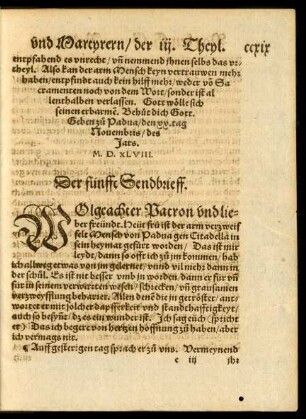 vnd Martyrern/ der iij. Theyl. ccxix
entpfahend es vnrecht/ vñ nemmend jhnen selbs das vr⸗
theyl. Also kan der arm Mensch keyn vertrauwen mehr
haben/ entpfindt auch kein hilff mehr/ weder võ Sa⸗
cramenten noch von dem Wort/ sonder ist al
lenthalben verlassen. Gott wölle sich
seinen erbarmẽ. Behüt dich Gott.
Geben zů Padua/ den xx. tag
Nouembris/ des
Jars.
M. D. XLVIII.
Der fünffte Sendbrieff.
WOlgeachter Patron vnd lie⸗
ber freündt. Heut frü ist der arm verzweif
felte Mensch von Padua gen Citadellā in
sein heymat gefürt worden/ Das ist mir
leydt/ dann so offt ich zů jm kommen/ hab
ich allweg etwas von jm gelernt/ vnnd vil mehr dann in
der schůl. Es ist nit besser vmb jn worden/ dann er für vñ
für in seinem verwirrten wesen/ schiecken/ vñ grausamen
verzweyfflung beharret. Allen denẽ die jn getröstet/ ant/
wortet er mit solcher dapfferkeit vnd standthafftigkeyt/
auch so besynt/ dz es ein wunder ist. Ich sag eüch (spricht
er) Das ich beger von hertzen hoffnung zů haben/ aber
ich vermags nit.
¶ Auff gesterigen tag sprach er zů vns. Vermeynend
e iij jhr